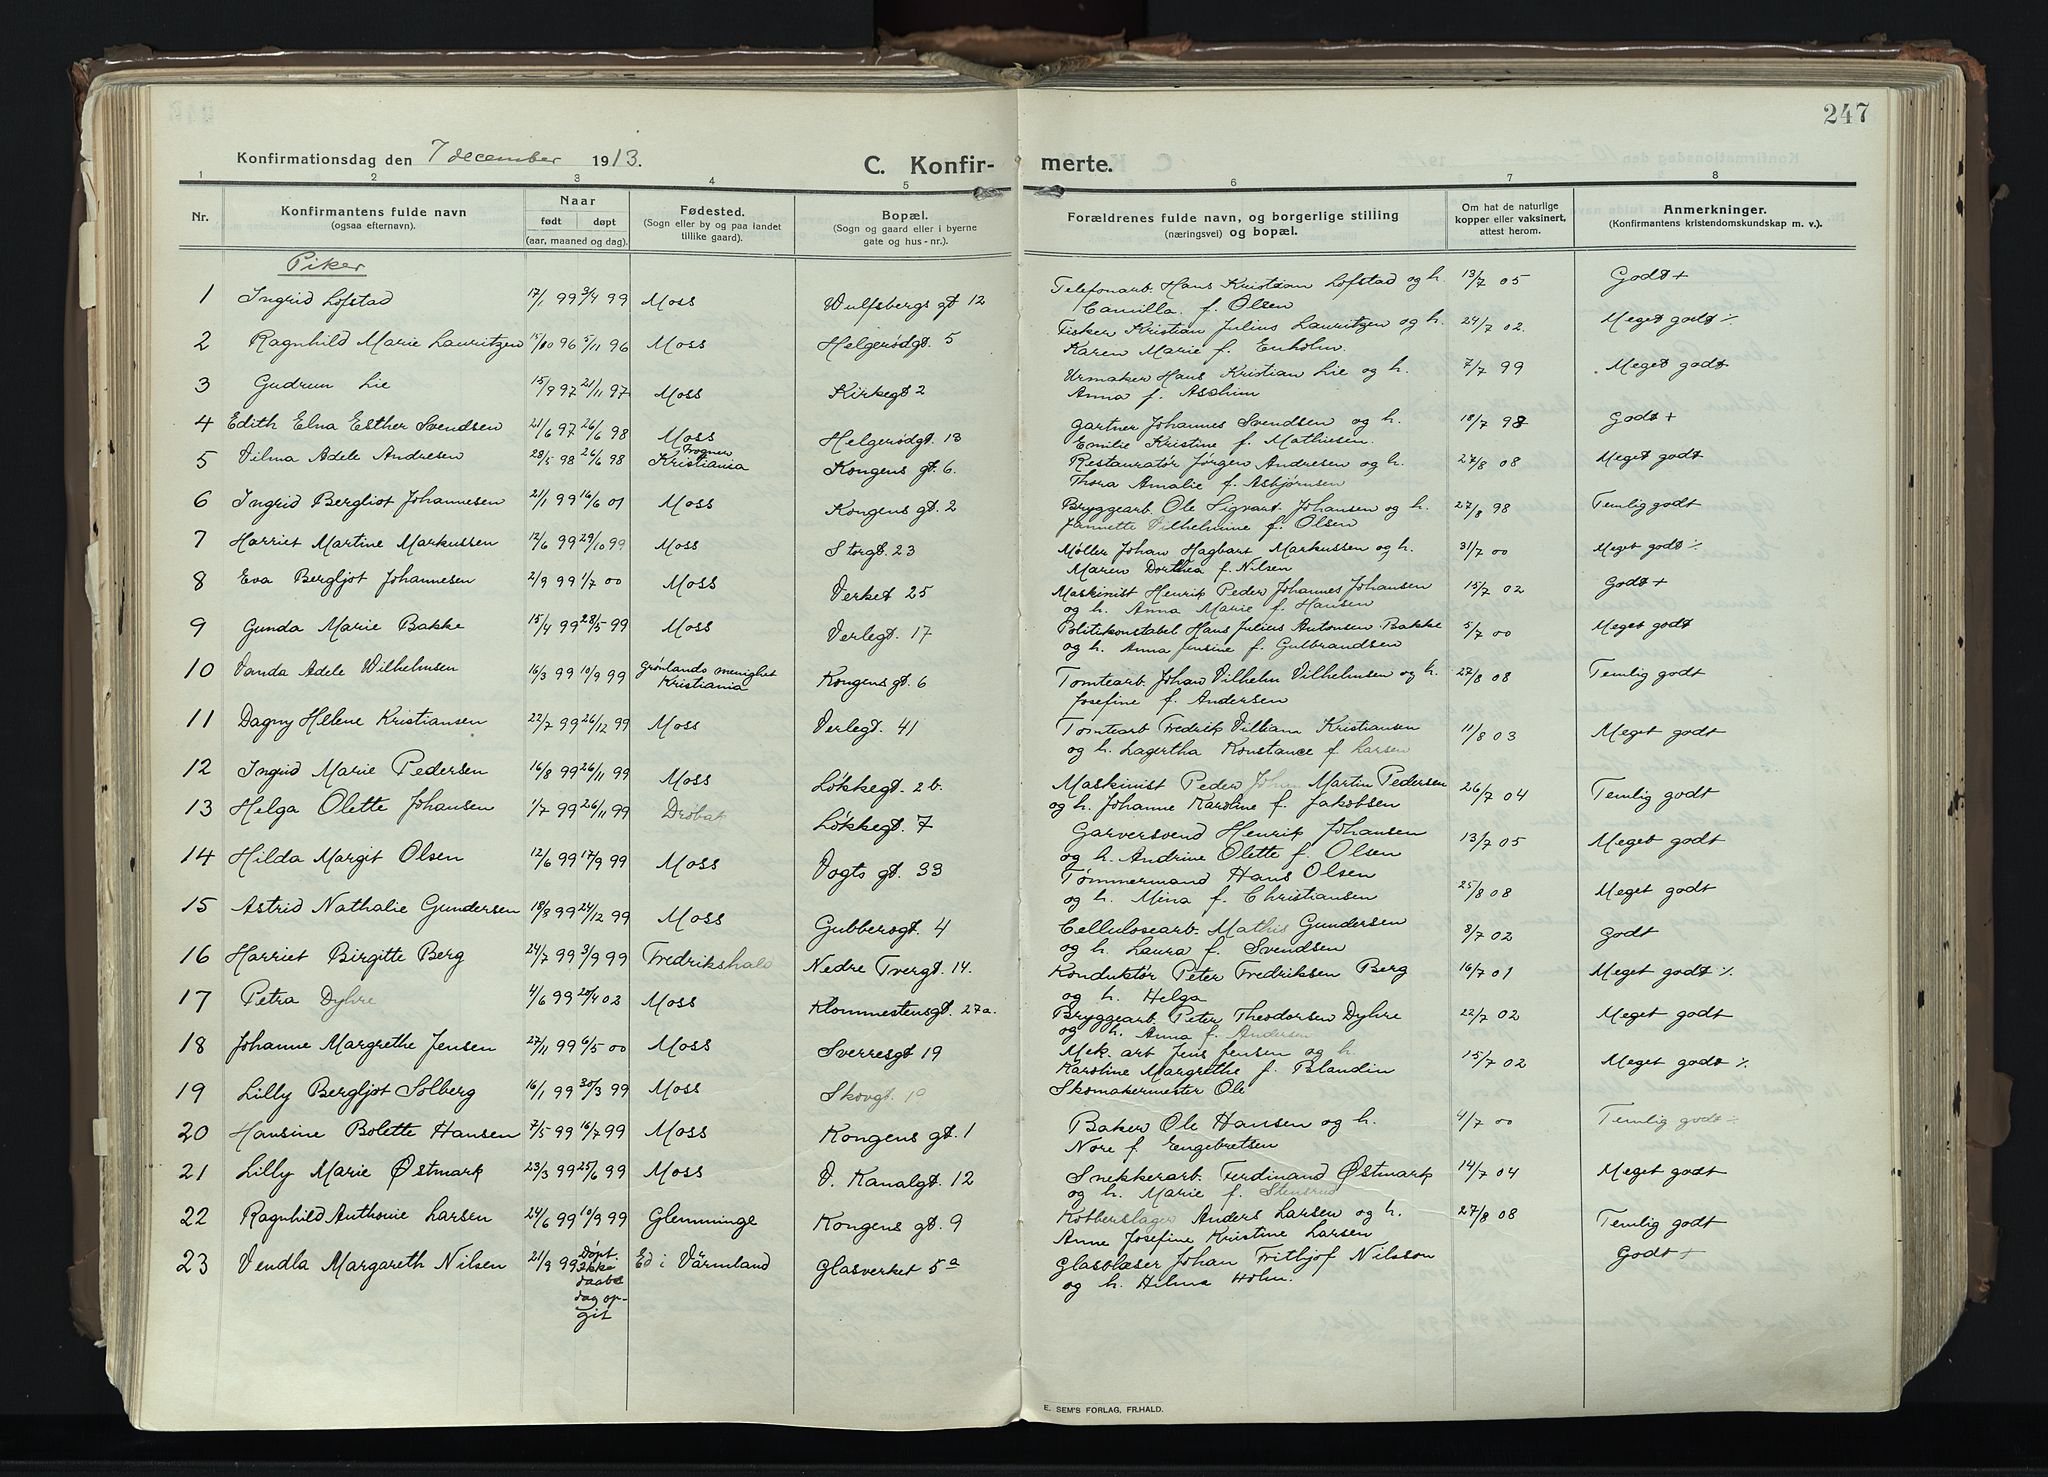 247
Konfirmationsdag den 7 december 1913.
C. Konfirmerte.
1 2 3 4 5 6 7 8
Nr.
Konfirmantens fulde navn
(ogsaa efternavn).
Naar
født døpt
(aar, maaned og dag).
Fødested.
(Sogn eller by og paa landet
tillike gaard).
Bopæl.
(Sogn og gaard eller i byerne
gate og hus-nr.).
Forældrenes fulde navn, og borgerlige stilling
(næringsvei) og bopæl.
Om hat de naturlige
kopper eller vaksinert,
attest herom.
Anmerkninger.
(Konfirmantens kristendomskundskap m. v.).
Piker
1 Ingrid Løfstad 17/1 99 3/4 99 Moss Wulfsbergs gt 12 Telefonarb. Hans Kristian Løfstad og h. 13/7 05 Godt +
Camilla f. Olsen
2 Ragnhild Marie Lauritzen 15/10 96 5/11 96 Moss Helgerødgt. 5 Fisker Kristian Julius Lauritzen og h. 24/7 02 Meget godt ٪
Karen Marie f. Enholm.
3 Gudrun Lie 15/9 97 21/11 97 Moss Kirkegt 2 Urmaker Hans Kristian Lie og h. 7/7 99 Meget godt
Anna f. Aschim
4 Edith Elna Esther Svendsen 21/6 97 26/6 98 Moss Helgerødgt. 13 Gartner Johannes Svendsen og h. 18/7 98 Godt +
Emilie Kristine f. Mathiesen.
5 Vilma Adele Andresen 28/5 98 26/6 98 Frogner Kristiania Kongens gt. 6. Restauratør Jørgen Andresen og h. 27/8 08 Meget godt
Thora Amalie f. Asbjørnsen
6 Ingrid Bergliot Johannesen 21/1 99 16/6 01 Moss Kongens gt. 2 Bryggearb. Ole Sigvart Johansen og h. 27/8 98 Temlig godt
Jannette Vilhelmine f. Olsen
7 Harriet Martine Markussen 12/6 99 29/10 99 Moss Storgt. 23 Møller Johan Hagbart Markussen og h. 31/7 00 Meget godt ٪
Maren Dorthea f. Nilsen
8 Eva Bergljot Johannesen 2/9 99 1/7 00 Moss Verket 25 Maskinist Henrik Peder Johannes Johansen 15/7 02 Godt +
og h. Anna Marie f. Hansen
9 Gunda Marie Bakke 15/4 99 28/5 99 Moss Verlegt. 17 Politikonstabel Hans Julius Antonsen Bakke 5/7 00 Meget godt
og h. Anna Jensine f. Gulbrandsen
10 Vanda Adele Wilhelmsen 16/3 99 10/9 99 Grønlands menighet Kristiania Kongens gt. 6 Tomtearb. Johan Vilhelm Vilhelmsen og h. 27/8 08 Temlig godt
Josefine f. Andersen
11 Dagny Helene Kristiansen 22/7 99 26/12 99 Moss Verlegt. 41 Tomtearb Fredrik Villiam Kristiansen 11/8 03 Meget godt
og h. Lagertha Konstance f. Larsen
12 Ingrid Marie Pedersen 16/8 99 26/11 99 Moss Løkkegt. 2 b. Maskinist Peder Johan Martin Pedersen 26/7 04 Temlig godt
og h. Johanne Karoline f. Jakobsen
13 Helga Olette Johansen 1/7 99 26/11 99 Drøbak Løkkegt. 7 Garversvend Henrik Johansen 13/7 05 Meget godt
og h. Andrine Olette f. Olsen
14 Hilda Margit Olsen 12/6 99 17/9 99 Moss Vogts gt. 33 Tømmermand Hans Olsen 25/8 08 Meget godt
og h. Mina f. Christiansen
15 Astrid Nathalie Gundersen 18/8 99 24/12 99 Moss Gubberogt. 4 Cellulosearb. Mathis Gundersen 3/7 02 Godt
og h. Laura f. Svendsen
16 Harriet Birgitte Berg 24/7 99 3/9 99 Fredrikshald Nedre Tvergt. 14. Konduktør Peter Fredriksen Berg 16/7 01 Meget godt ٪
og h. Helga
17 Petra Dyhre 4/6 99 20/4 02 Moss Klommestensgt. 27 a. Bryggearb. Peter Theodorsen Dyhre 22/7 02 Meget godt
og h. Anna f. Andersen
18 Johanne Margrethe Jensen 27/11 99 6/5 00 Moss Sverresgt 19 Mek. arb Jens Jensen og h. 15/7 02 Meget godt ٪
Karoline Margrethe f. Blandin
19 Lilly Bergljot Solberg 16/1 99 30/3 99 Moss Skovgt. 10 Skomakermester Ole
20 Hansine Bolette Hansen 7/5 99 16/7 99 Moss Kongens gt. 1 Baker Ole Hansen og h. 4/7 00 Temlig godt ٪
Nore f. Engebretsen
21 Lilly Marie Østmark 23/3 99 25/6 99 Moss V. Kanalgt. 12 Snekkerarb. Ferdinand Østmark 14/7 04 Meget godt
og h. Marie f. Stensrud
22 Ragnhild Anthonie Larsen 24/6 99 10/9 99 Glemminge Kongens gt. 9 Kobberslager Anders Larsen og h. 27/8 08 Temlig godt
Anne Josefine Kristine Larsen
23 Vendla Margareth Nilsen 21/9 99 Døpt ikke daabsdag opgit Ed i Värmland Glasverket 5a Glasblæser Johan Frithjof Nilsson Godt +
og h. Hilma Holm.
E. SEM'S FORLAG, FR.HALD.